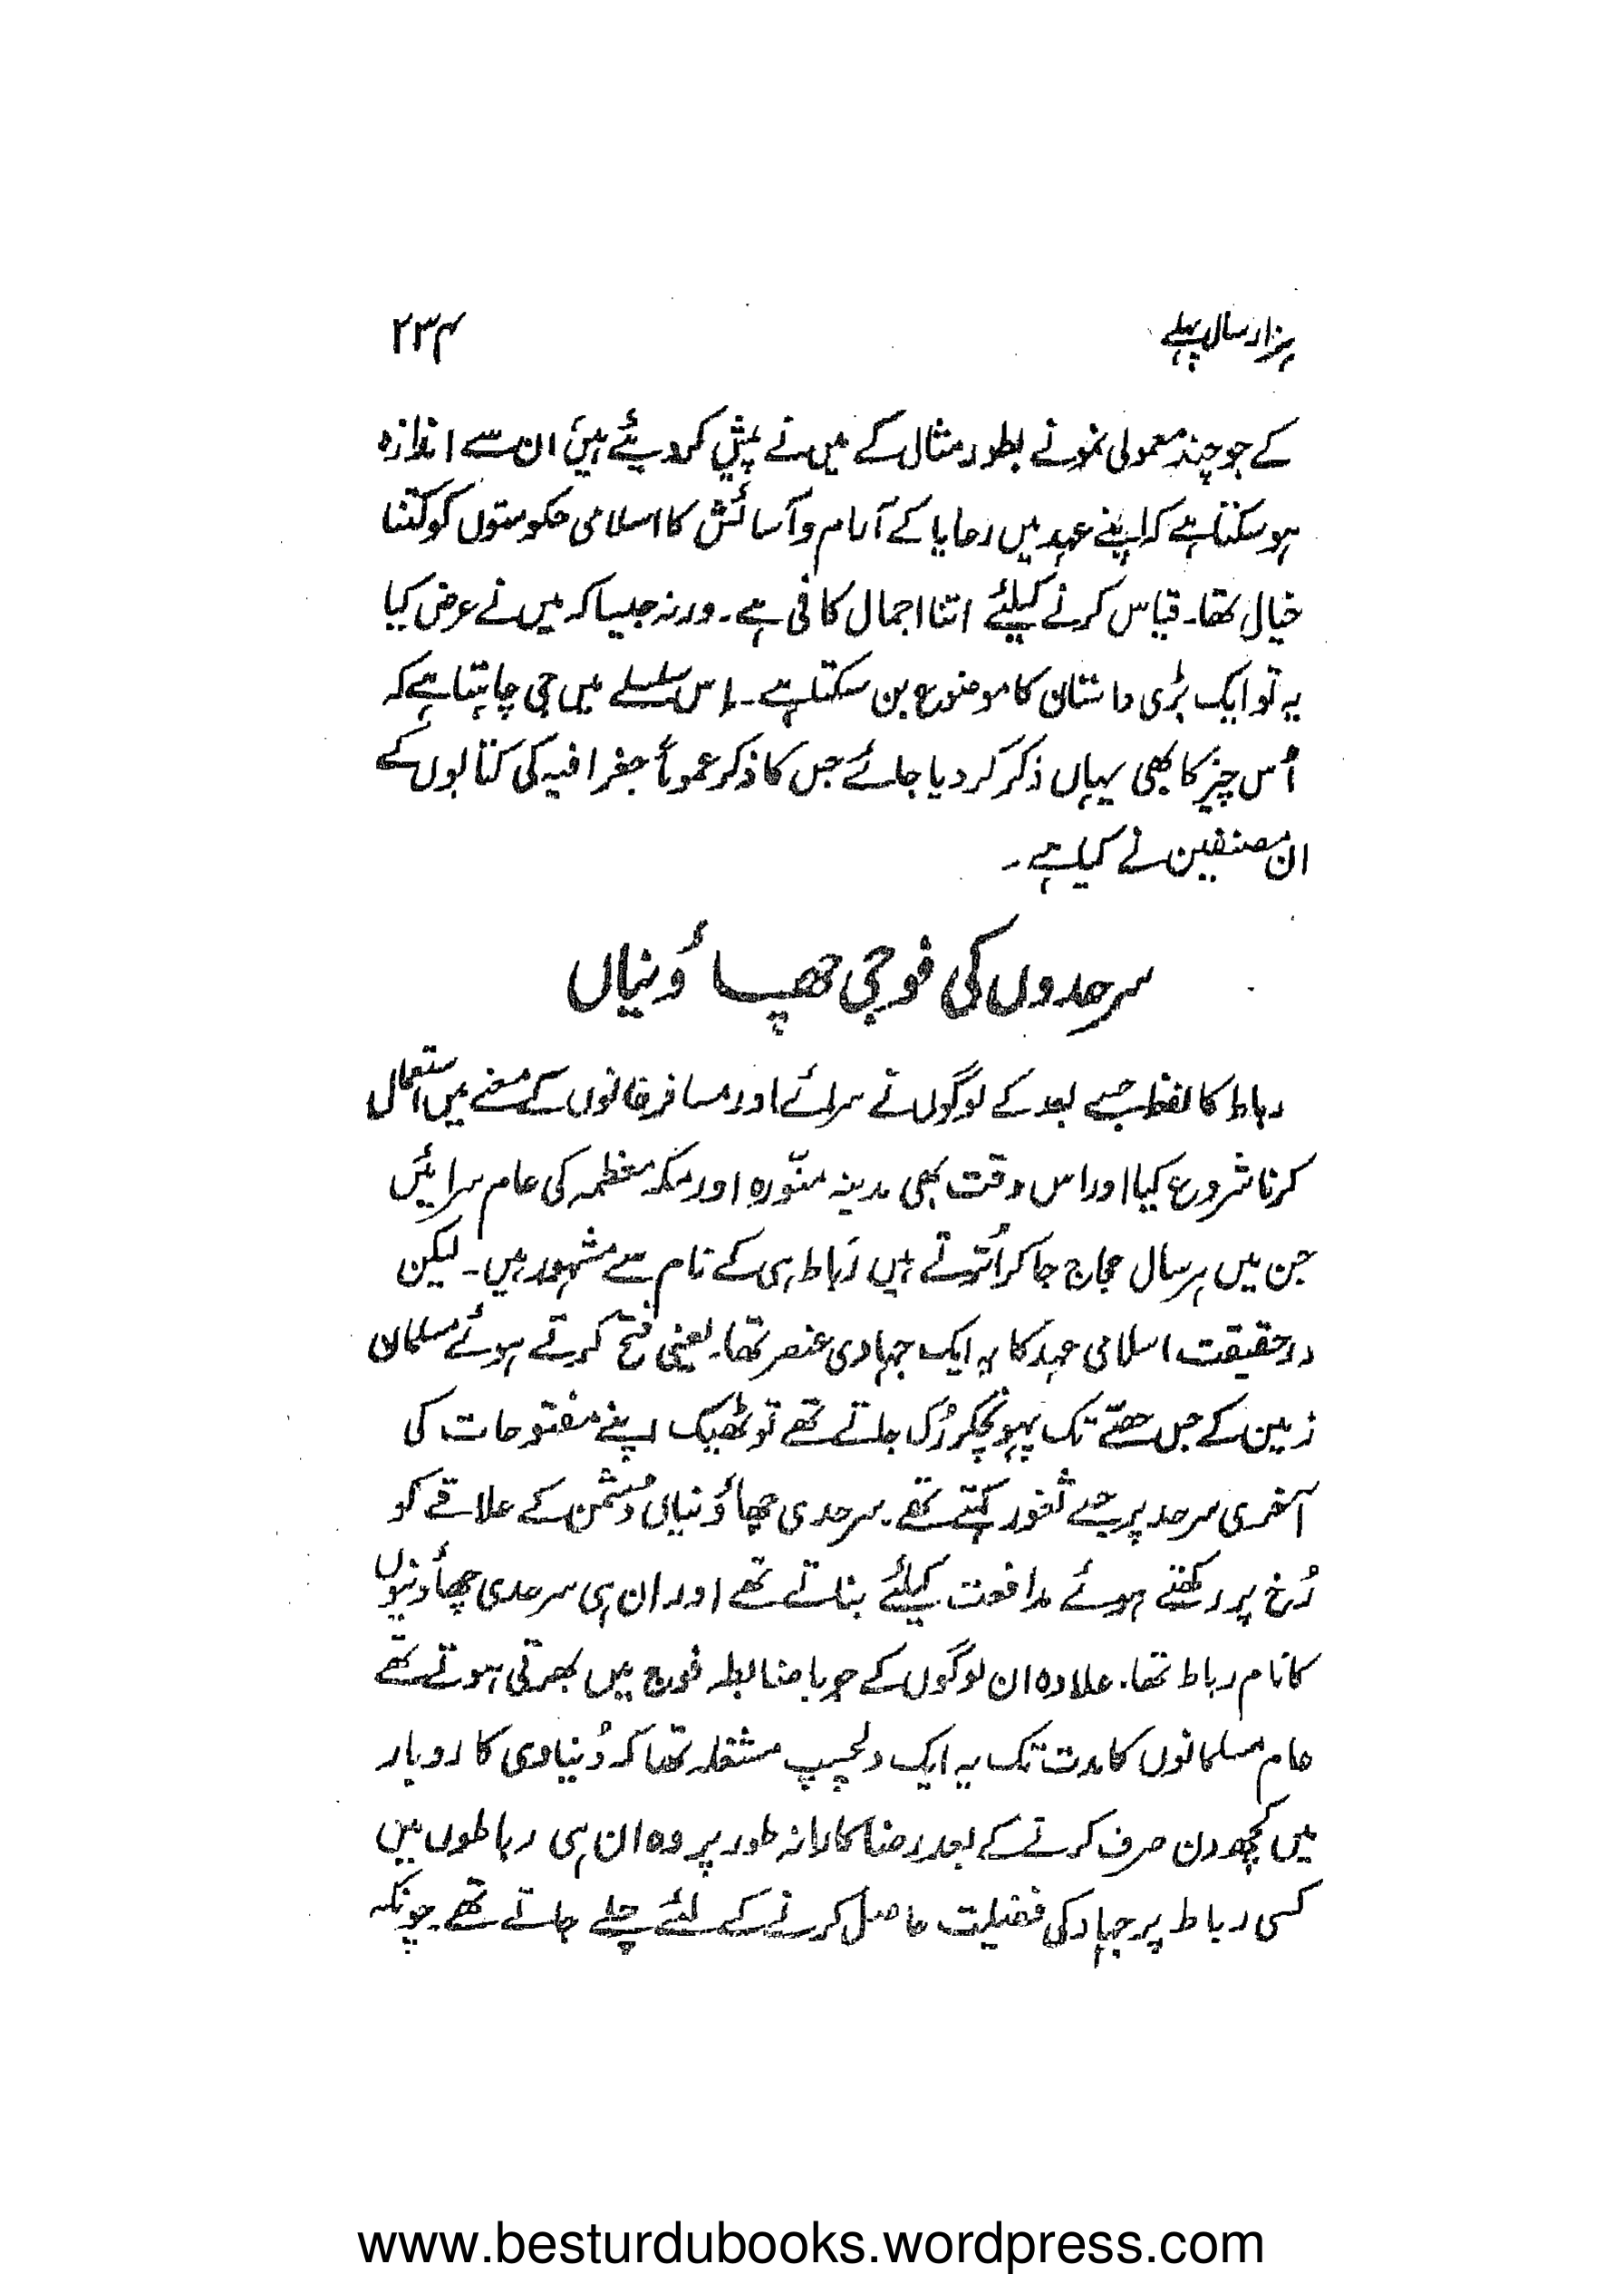 ہزار سال پہلے
۲۳۴
کے جو چند معمولی نمونے بطور مثال کے میں نے پیش کر دیئے ہیں ان سے اندازہ
ہو سکتا ہے کہ اپنے عہد میں رعایا کے آرام و آسائش کا اسلامی حکومتوں کو کتنا
خیال تھا۔ قیاس کرنے کیلئے اتنا اجمال کافی ہے۔ ورنہ جیسا کہ میں نے عرض کیا
یہ تو ایک بڑی داستان کا موضوع بن سکتا ہے۔ اس سلسلے میں جی چاہتا ہے کہ
اُس چیز کا بھی یہاں ذکر کر دیا جائے جس کا ذکر عموماً جغرافیہ کی کتابوں کے
ان مصنفین نے کیا ہے۔
سرحدوں کی فوجی چھاؤنیاں
رباط کا لفظ جسے بعد کے لوگوں نے سرائے اور مسافر خانوں کے معنے میں استعمال
کرنا شروع کیا اور اس وقت بھی مدینہ منوّرہ اور مکہ معظمہ کی عام سرائیں
جن میں ہر سال حجاج جا کر اُترتے ہیں رَباط ہی کے نام سے مشہور ہیں۔ لیکن
درحقیقت اسلامی عہد کا یہ ایک جہادی عنصر تھا۔ یعنی فتح کرتے ہوئے مسلمان
زمین کے جس حصّے تک پہونچکر رُک جاتے تھے تو ٹھیک اپنے مفتوحات کی
آخری سرحد پر جسے ثغور کہتے تھے۔ سرحدی چھاؤنیاں دُشمن کے علاقے کو
رُخ پر رکھتے ہوئے مدافعت کیلئے بناتے تھے اور ان ہی سرحدی چھاؤنیوں
کا نام رباط تھا۔ علاوہ ان لوگوں کے جو باضابطہ فوج میں بھرتی ہوتے تھے
عام مسلمانوں کا مدت تک یہ ایک دلچسپ مشغلہ تھا کہ دُنیاوی کاروبار
میں کچھ دن صرف کرنے کے بعد رضاکارانہ طور پر وہ ان ہی رباطوں میں
کسی رباط پر جہاد کی فضیلت حاصل کرنے کے لئے چلے جاتے تھے چونکہ
www.besturdubooks.wordpress.com